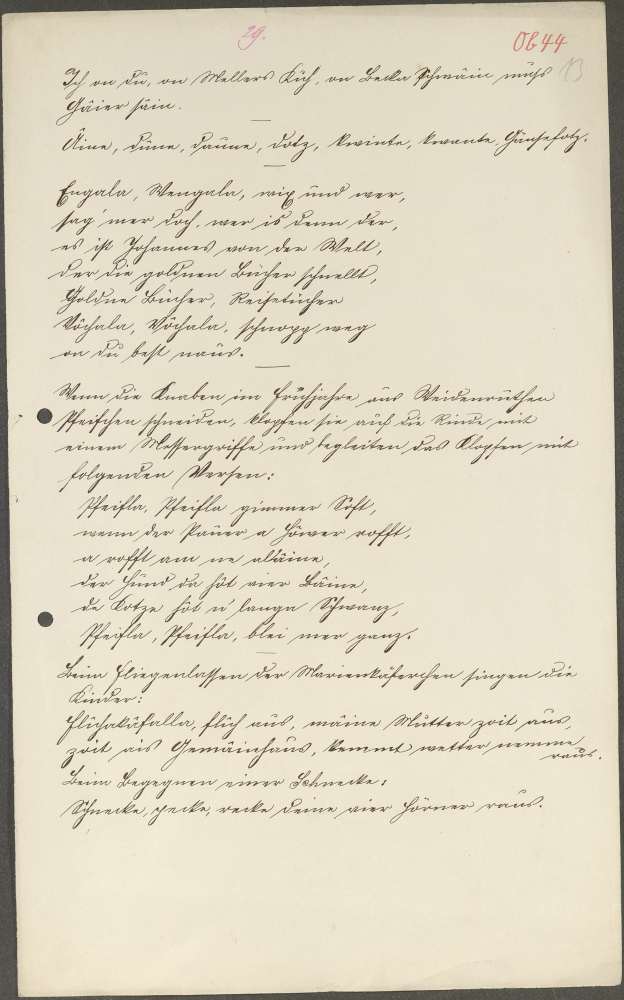 29.
Ob 44
13
Ich on du, on Mellers Küh, on Becka Schwäin muß
Gäier säin.
Äine, düne, daune, dotz, kwinte, kwante, Gänsefotz.
Engala, Wengala, wix und wer,
sag' mer doch, wer is denn der,
es ist Johannes von der Welt,
der die goldnen Bücher schnellt,
Goldne Bücher, Reisetücher
Vöchala, Vöchala, schnapp weg
on du best naus.
Wenn die Knaben im Frühjahre aus Weidenruthen
Pfeifchen schneiden, klopfen sie auf die Rinde mit
einem Messergriffe und begleiten das Klopfen mit
folgenden Versen:
Pfeifla, Pfeifla gimmer Soft,
wenn der Pauer a Höwer rofft,
a rofft am ne aläine,
der Hund da hot vier Bäine,
de Kotze hot n' langa Schwanz,
Pfeifla, Pfeifla, blei mer ganz.
Beim Fliegenlassen der Marienkäferchen singen die
Kinder:
flüch aus, mäine Mutter zoit aus,
zoit ais Gemäinhaus, kemmt wetter nemme
raus.
Beim Begegnen einer Schnecke:
Schnecke, pecke, recke deine vier Hörner raus.